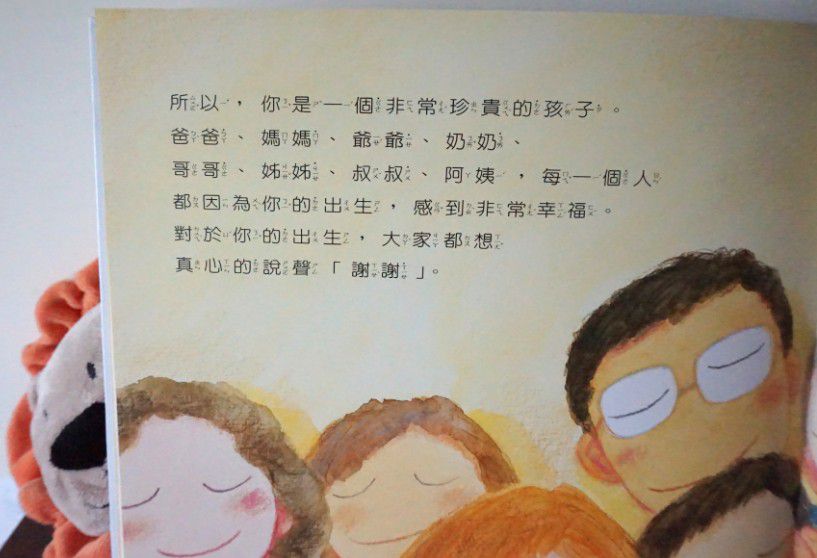 所以，你是一個非常珍貴的孩子。
爸爸、媽媽、爺爺、奶奶、
哥哥、姊姊、叔叔、阿姨，每一個人
都因為你的出生，感到非常幸福。
對於你的出生，大家都想
真心的說聲「謝謝」。